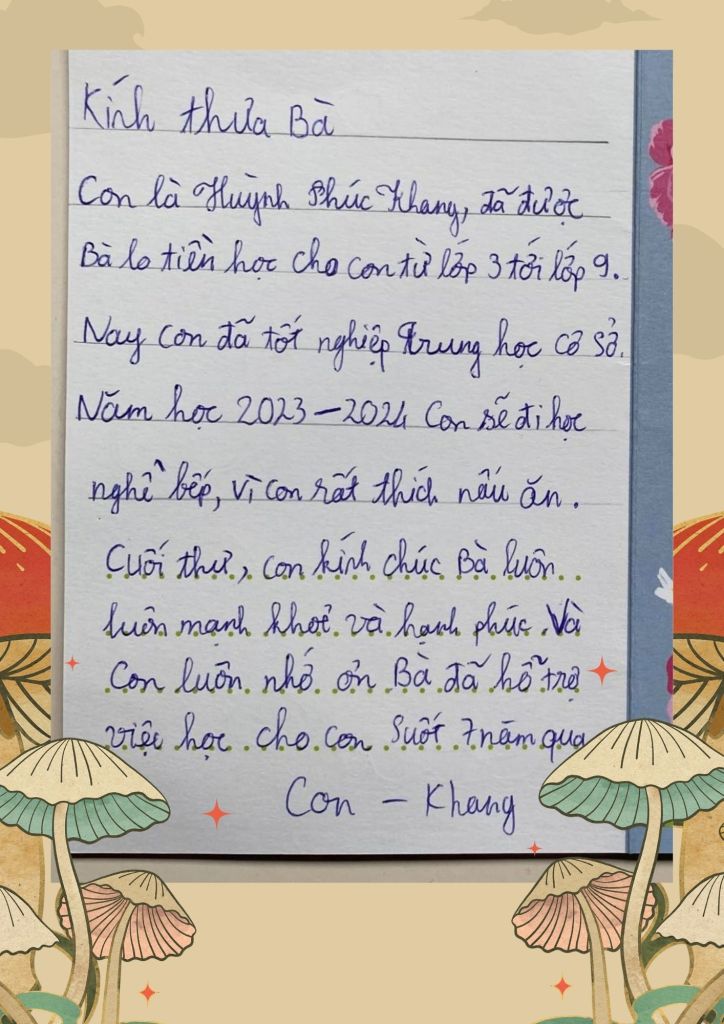 Kính thưa Bà
Con là Huỳnh Phúc Khang, đã được
Bà lo tiền học cho con từ lớp 3 tới lớp 9.
Nay con đã tốt nghiệp trung học cơ sở.
Năm học 2023-2024 con sẽ đi học
nghề bếp, vì con rất thích nấu ăn.
Cuối thư, con kính chúc Bà luôn
luôn mạnh khoẻ và hạnh phúc. Và
con luôn nhớ ơn Bà đã hỗ trợ
việc học cho con suốt 7 năm qua
Con - Khang